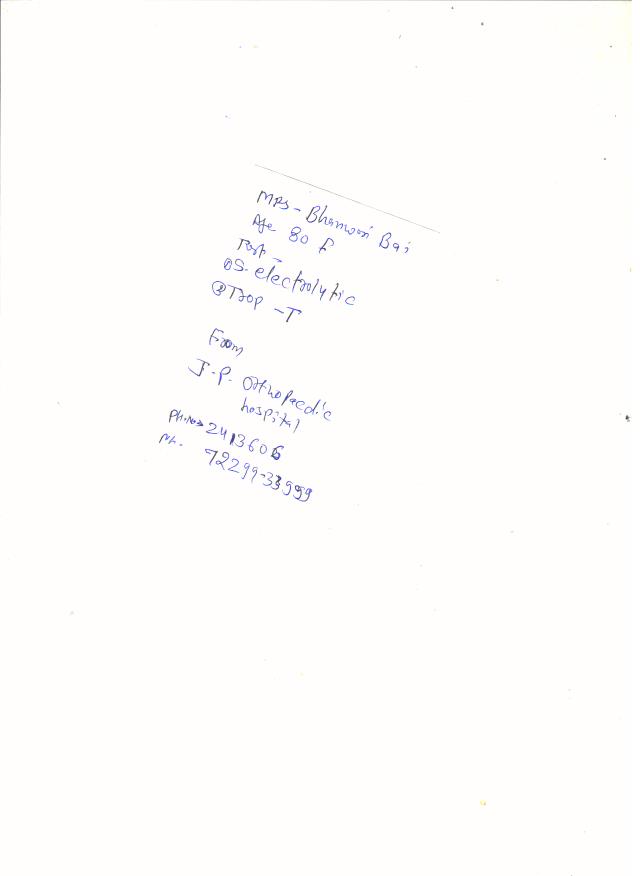 MRS - Bhanwari Bai
Age 80 F
Test -
① S. electrolytic
② Trop - T
From
J.P. Orthopaedic
hospital
Ph. No 2413606
72299-33999